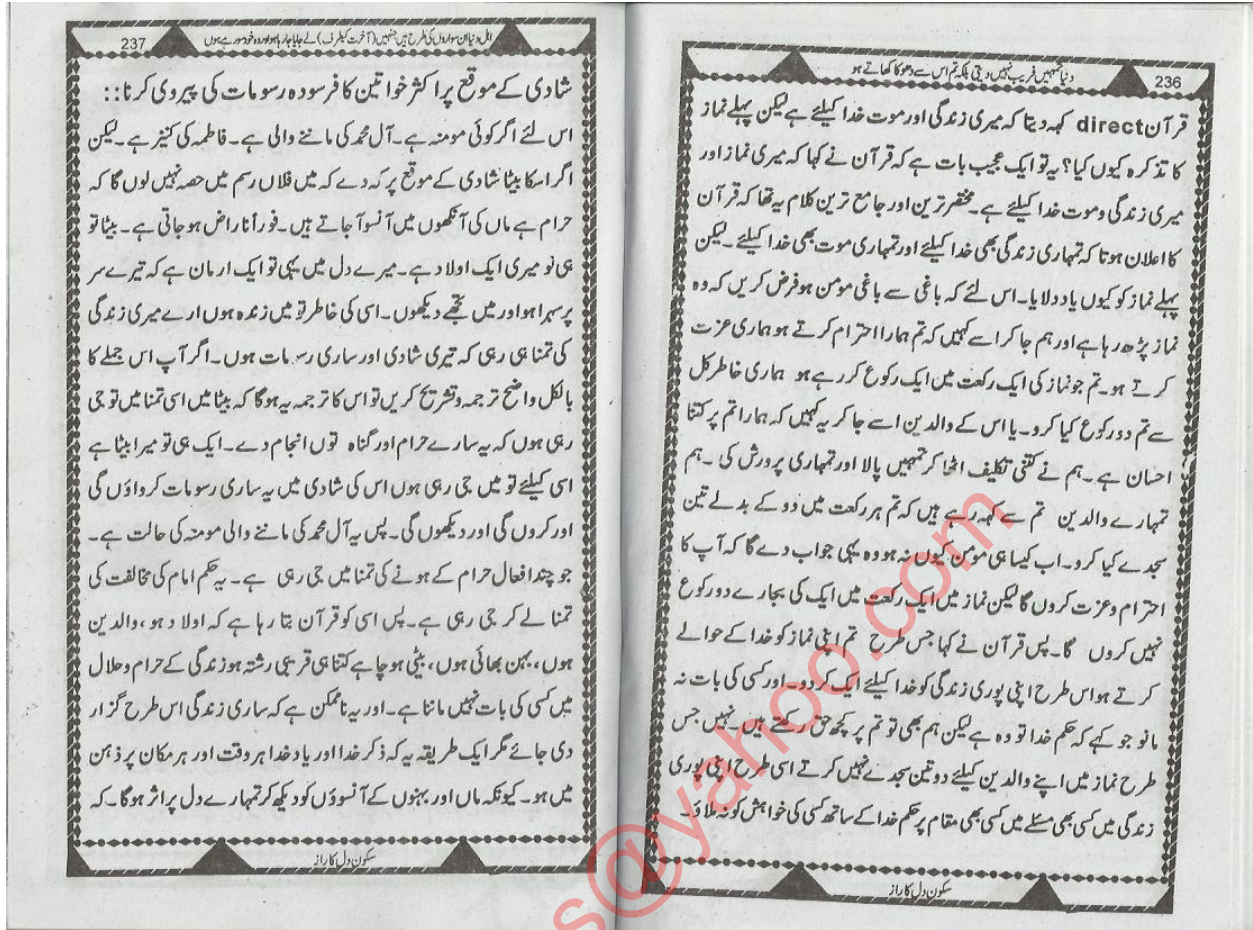 236
دنیا تمہیں فریب نہیں دیتی بلکہ تم اس سے دھوکا کھاتے ہو
قرآن direct کہہ دیتا کہ میری زندگی اور موت خدا کیلئے ہے لیکن پہلے نماز
کا تذکرہ کیوں کیا؟ یہ تو ایک عجیب بات ہے کہ قرآن نے کہا کہ میری نماز اور
میری زندگی و موت خدا کیلئے ہے۔ مختصر ترین اور جامع ترین کلام یہ تھا کہ قرآن
کا اعلان ہوتا کہ تمہاری زندگی بھی خدا کیلئے اور تمہاری موت بھی خدا کیلئے۔ لیکن
پہلے نماز کو کیوں یاد دلایا۔ اس لئے کہ باغی سے باغی مومن ہو فرض کریں کہ وہ
نماز پڑھ رہا ہے اور ہم جا کر اسے کہیں کہ تم ہمارا احترام کرتے ہو ہماری عزت
کرتے ہو۔ تم جو نماز کی ایک رکعت میں ایک رکوع کر رہے ہو ہماری خاطر کل
سے تم دو رکوع کیا کرو۔ یا اس کے والدین اسے جا کر یہ کہیں کہ ہمارا تم پر کتنا
احسان ہے۔ ہم نے کتنی تکلیف اٹھا کر تمہیں پالا اور تمہاری پرورش کی ۔ ہم
تمہارے والدین تم سے کہہ رہے ہیں کہ تم ہر رکعت میں دو کے بدلے تین
سجدے کیا کرو۔ اب کیسا ہی مؤمن کیوں نہ ہو وہ یہی جواب دے گا کہ آپ کا
احترام و عزت کروں گا لیکن نماز میں ایک رکعت میں ایک کی بجارے دو رکوع
نہیں کروں گا۔ پس قرآن نے کہا جس طرح تم اپنی نماز کو خدا کے حوالے
کرتے ہو اس طرح اپنی پوری زندگی کو خدا کیلئے ایک کر دو۔ اور کسی کی بات نہ
مانو جو کہے کہ حکم خدا تو وہ ہے لیکن ہم بھی تو تم پر کچھ حق رکھتے ہیں۔ نہیں جس
طرح نماز میں اپنے والدین کیلئے دو تین سجدے نہیں کرتے اسی طرح اپنی پوری
زندگی میں کسی بھی مسئلے میں کسی بھی مقام پر حکم خدا کے ساتھ کسی کی خواہش کو نہ ملاؤ۔
سکون دل کا راز
237
اہل دنیا ان سواروں کی طرح ہیں جنہیں (آخرت کیطرف) لے جایا جا رہا ہو اور وہ خود سو رہے ہوں
شادی کے موقع پر اکثر خواتین کا فرسودہ رسومات کی پیروی کرنا::
اس لئے اگر کوئی مومنہ ہے۔ آل محمد کی ماننے والی ہے۔ فاطمہ کی کنیز ہے۔ لیکن
اگر اسکا بیٹا شادی کے موقع پر کہ دے کہ میں فلاں رسم میں حصہ نہیں لوں گا کہ
حرام ہے ماں کی آنکھوں میں آنسو آ جاتے ہیں۔ فوراً ناراض ہو جاتی ہے۔ بیٹا تو
ہی نو میری ایک اولاد ہے۔ میرے دل میں یہی تو ایک ارمان ہے کہ تیرے سر
پر سہرا ہو اور میں تجھے دیکھوں۔ اسی کی خاطر تو میں زندہ ہوں ارے میری زندگی
کی تمنا ہی رہی کہ تیری شادی اور ساری رسومات ہوں۔ اگر آپ اس جملے کا
بالکل واضح ترجمہ و تشریح کریں تو اس کا ترجمہ یہ ہوگا کہ بیٹا میں اسی تمنا میں تو جی
رہی ہوں کہ یہ سارے حرام اور گناہ توں انجام دے۔ ایک ہی تو میرا بیٹا ہے
اسی کیلئے تو میں جی رہی ہوں اس کی شادی میں یہ ساری رسومات کرواؤں گی
اور کروں گی اور دیکھوں گی۔ پس یہ آل محمد کی ماننے والی مومنہ کی حالت ہے۔
جو چند افعال حرام کے ہونے کی تمنا میں جی رہی ہے۔ یہ حکم امام کی مخالفت کی
تمنا لے کر جی رہی ہے۔ پس اسی کو قرآن بتا رہا ہے کہ اولاد ہو، والدین
ہوں، بہن بھائی ہوں، بیٹی ہو چاہے کتنا ہی قریبی رشتہ ہو زندگی کے حرام و حلال
میں کسی کی بات نہیں ماننا ہے۔ اور یہ ناممکن ہے کہ ساری زندگی اس طرح گزار
دی جائے مگر ایک طریقہ یہ کہ ذکر خدا اور یاد خدا ہر وقت اور ہر مکان پر ذہن
میں ہو۔ کیونکہ ماں اور بہنوں کے آنسوؤں کو دیکھ کر تمہارے دل پر اثر ہوگا۔ کہ
سکون دل کا راز
s@yahoo.com